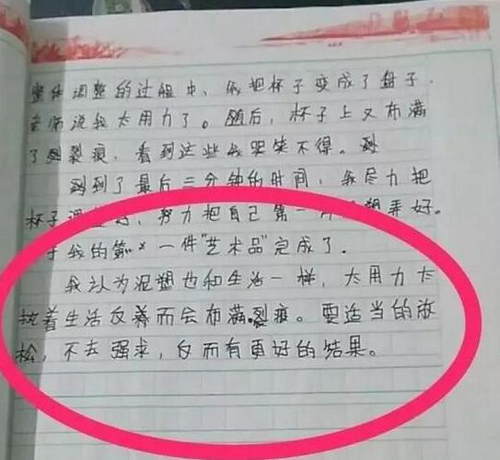 整体调整的过程中、我把杯子变成了盘子。
老师说我太用力了。随后，杯子上又布满
了裂痕，看到这些我哭笑不得。
到了最后三分钟的时间，我尽力把
杯子调整好，努力把自己第一
我的第一件"艺术品"完成了.
我认为泥塑也和生活一样，太用力太
执着生活反善而会布满裂痕。要适当的放
松，不去强求，反而有更好的结果。